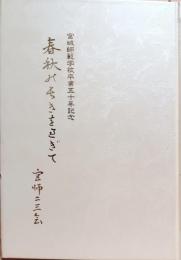 宮城師範学校卒業五十年記念
春秋の長きを过ぎて
宮師二三会